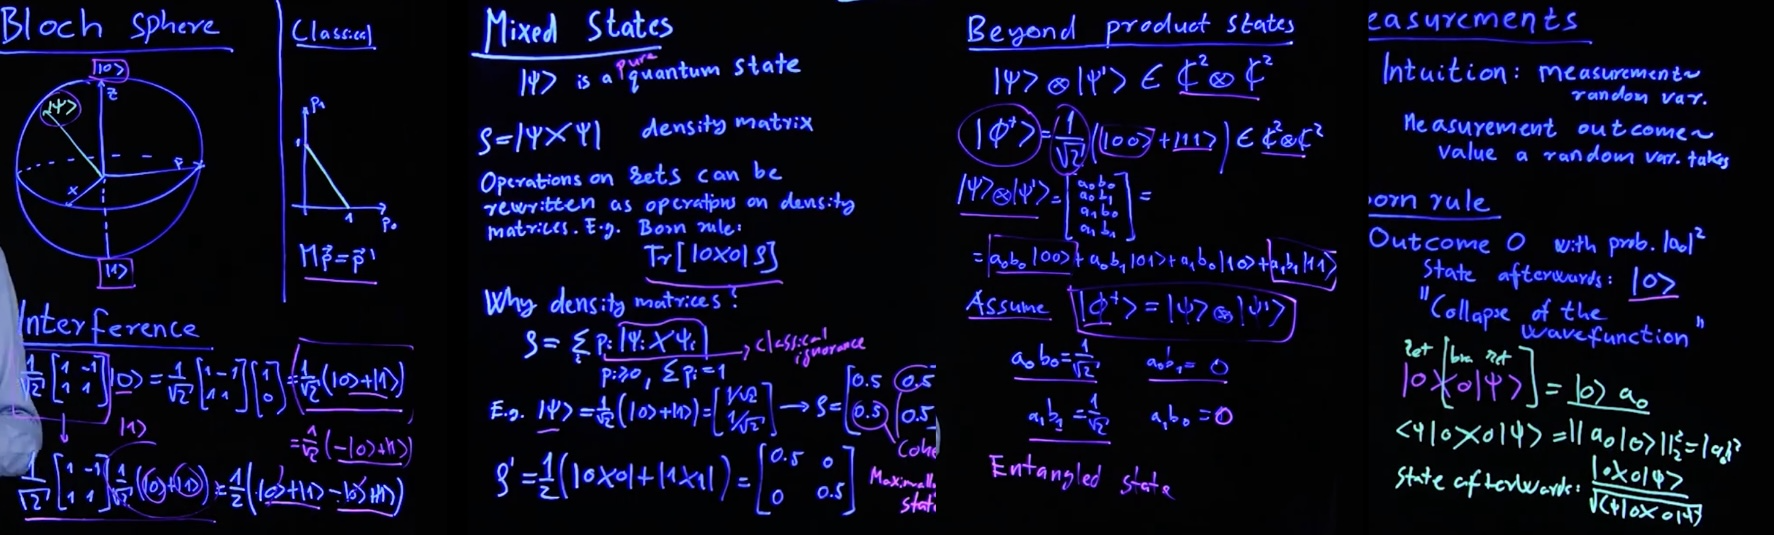 Bloch sphere
|0>
z
|ψ>
x
|1>
Classical
P1
1
1
P0
M p⃗ = p⃗'
Interference
1/√2 [1 -1; 1 1] |0> = 1/√2 [1 -1; 1 1] [1; 0] = 1/√2 (|0>+|1>)
|1>
= 1/√2 (-|0>+|1>)
1/√2 [1 -1; 1 1] 1/√2 (|0>+|1>) = 1/2 (|0>+|1> -|0>+|1>)
Mixed States
pure
|ψ> is a quantum state
ρ=|ψX ψ| density matrix
Operations on kets can be
rewritten as operations on density
matrices. E.g. Born rule:
Tr[|0X0|ρ]
Why density matrices?
ρ= Σi pi |ψi X ψi| → classical
ignorance
pi≥0, Σpi=1
E.g. |ψ>=1/√2 (|0>+|1>) = [1/√2; 1/√2] → ρ= [0.5 0.5; 0.5 0.5]
ρ'=1/2 (|0X0|+|1X1|) = [0.5 0; 0 0.5]
Beyond product states
|ψ> ⊗ |ψ'> ∈ ℂ² ⊗ ℂ²
|Φ⁺> = 1/√2 (|00> + |11>) ∈ ℂ²⊗ℂ²
|ψ>⊗|ψ'> = [a0b0; a0b1; a1b0; a1b1] =
= a0b0 |00> + a0b1 |01> + a1b0 |10> + a1b1 |11>
Assume |Φ⁺> = |ψ> ⊗ |ψ'>
a0b0=1/√2 a0b1= 0
a1b1=1/√2 a1b0=0
Entangled state
easurements
Intuition: measurement~
random var.
Measurement outcome~
value a random var. takes
orn rule
Outcome 0 with prob. |a0|²
State afterwards: |0>
"Collapse of the
wavefunction"
ket bra ket
|0X0|ψ> = |0> a0
<ψ|0X0|ψ> = ||a0|0>||₂² = |a0|²
State afterwards: |0X0|ψ> / √<ψ|0X0|ψ>